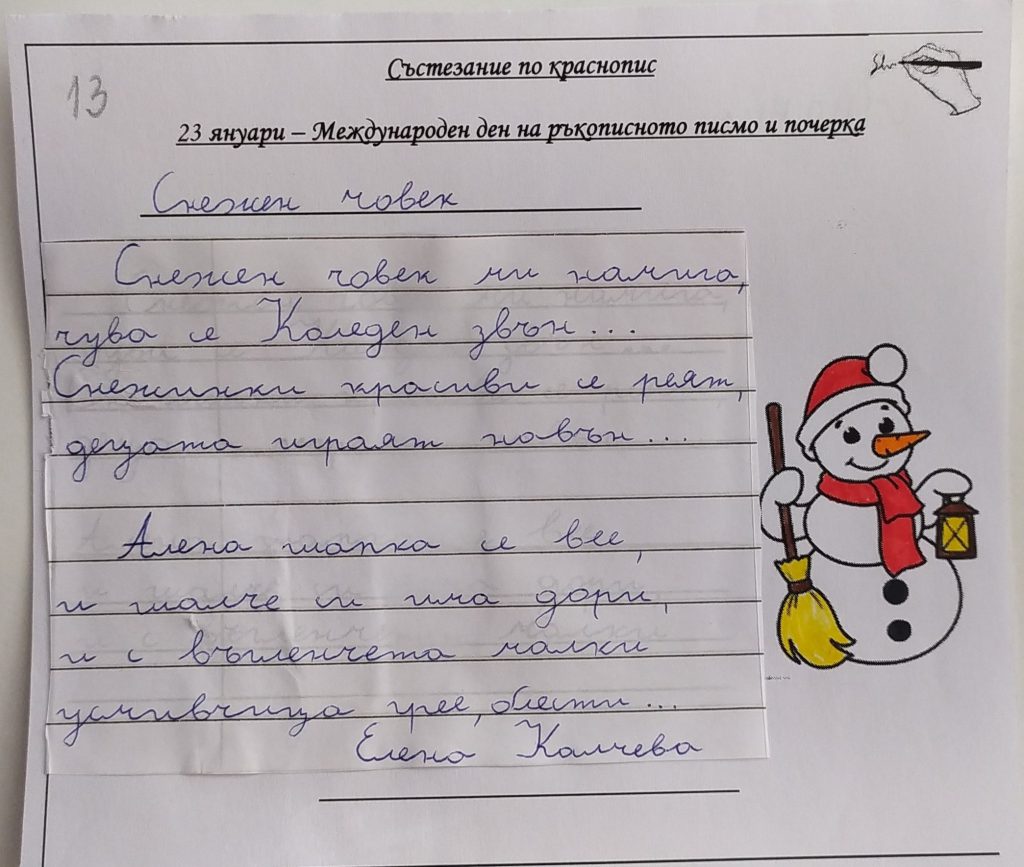 13
Състезание по краснопис
23 януари – Международен ден на ръкописното писмо и почерка
Снежен човек
Снежен човек ми намига,
чува се Коледен звън...
Снежинки красиви се реят,
децата играят навън...
Алена шапка се вее,
и шалче си има дори,
и с въгленчета малки
усмивчица грее, блести...
Елена Калчева